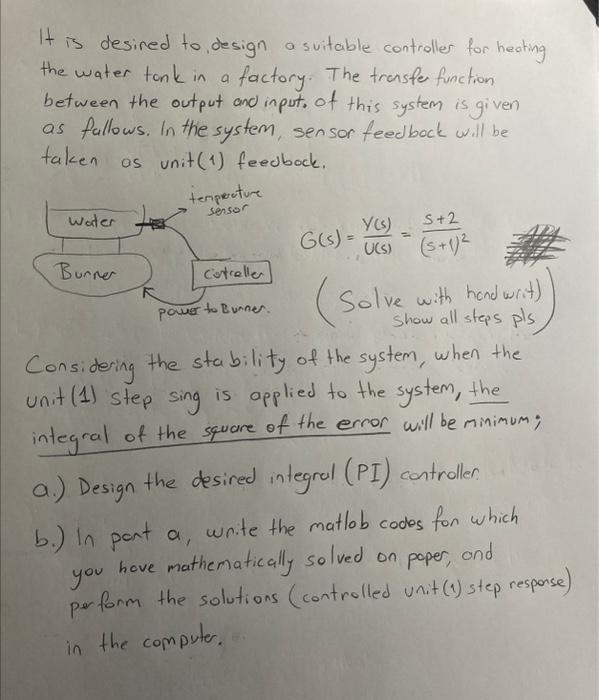 It is desired to design a suitable controller for heating
the water tank in a factory. The transfer function
between the output and input of this system is given
as fallows. In the system, sensor feedback will be
taken as unit(1) feedback.
temperature
sensor
Water
G(s) = Y(s)/U(s) = s+2/(s+1)²
Burner
Cotroller
power to Burner.
(Solve with hand writ)
show all steps pls
Considering the stability of the system, when the
unit (1) step sing is applied to the system, the
integral of the square of the error will be minimum;
a.) Design the desired integral (PI) controller.
b.) In part a, write the matlab codes for which
you have mathematically solved on paper, and
perform the solutions (controlled unit(1) step response)
in the computer.